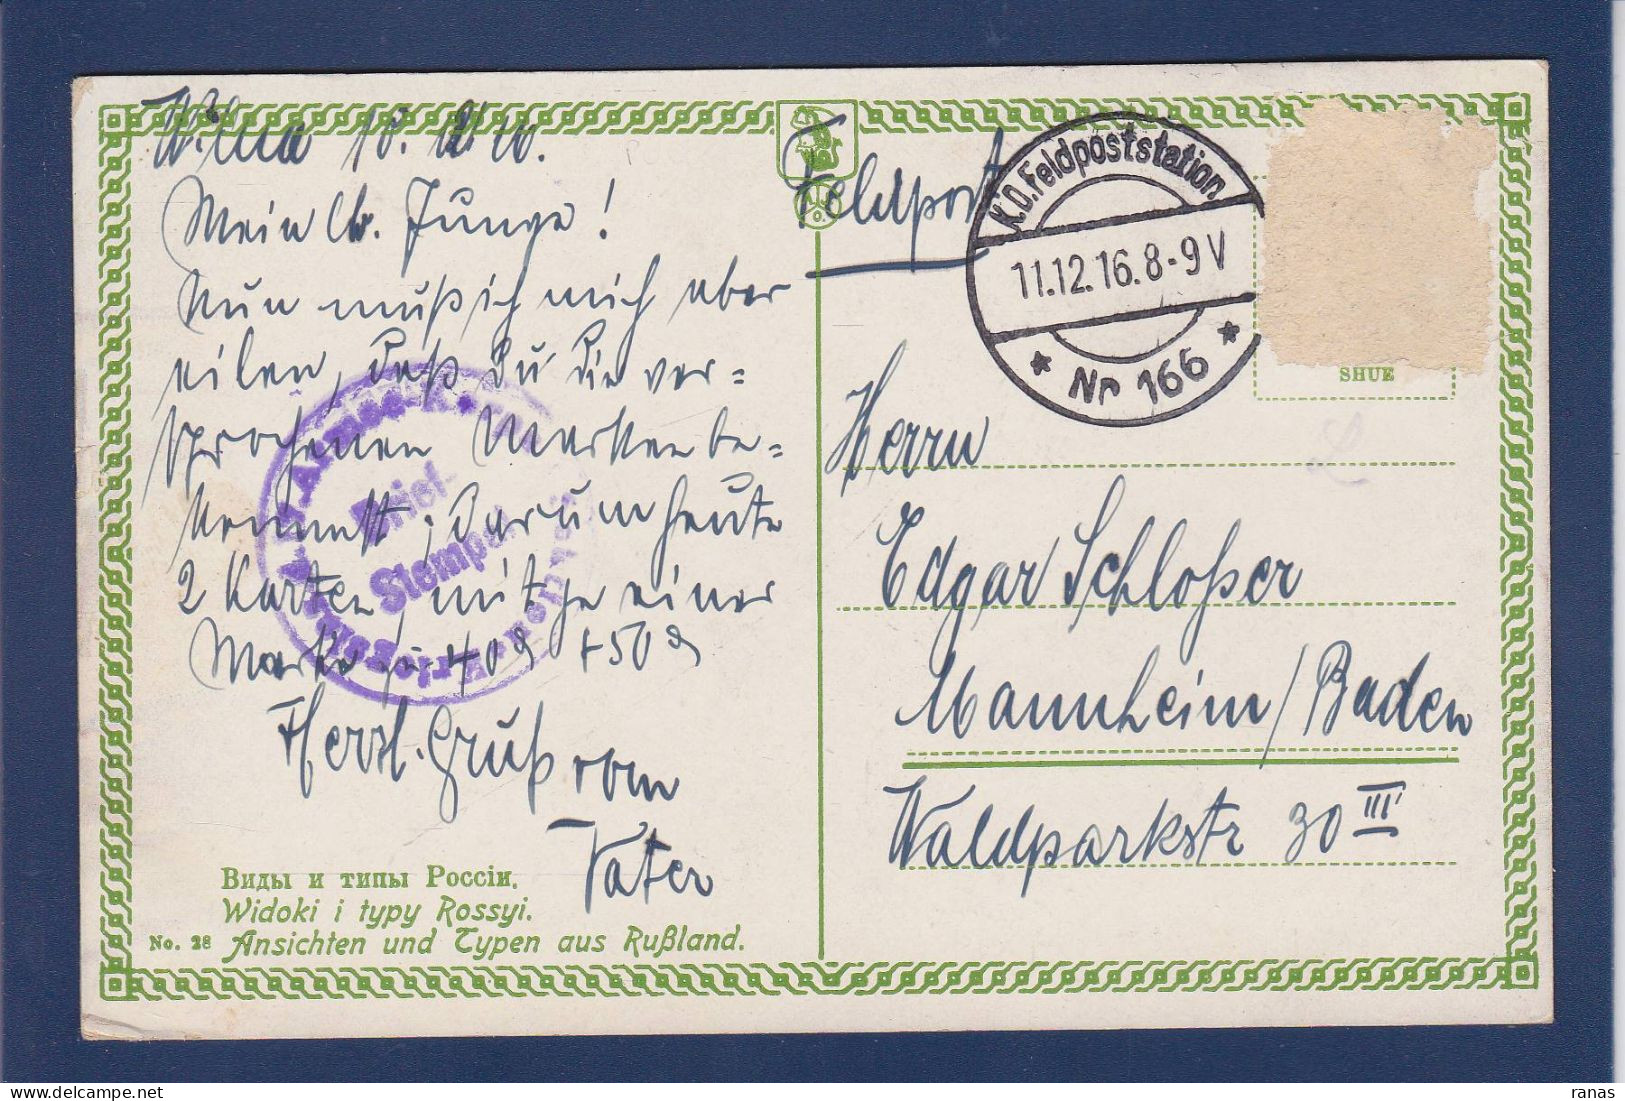 Wilna 10. 12. 16.
Mein lb. Junge!
Nun muß ich mich aber
eilen, daß Du die ver=
sprochenen Marken be=
kommst; darum heute
2 Karten mit je einer
Marke zu 40 ₰ + 50 ₰
Herzl. Gruß vom
Vater
Виды и типы Россіи.
Widoki i typy Rossyi.
No. 28 Ansichten und Typen aus Rußland.
Brief-
Stempel
Feldpost
K.D. Feldpoststation
11.12.16. 8-9 V
* Nr 166 *
SHUE
Herrn
Edgar Schloßer
Mannheim/Baden
Waldparkstr 30 III
ranas